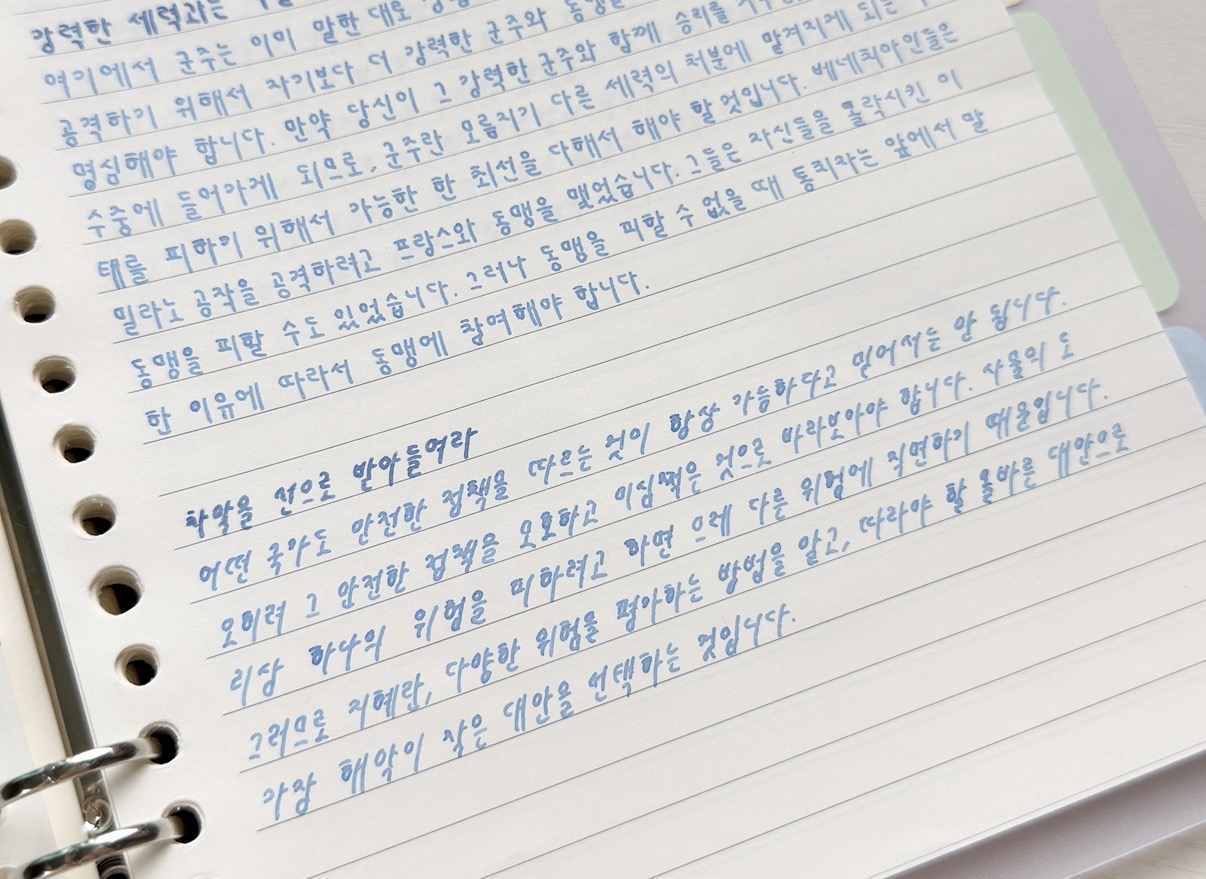 강력한 세력과는
여기에서 군주는 이미 말한 대로
공격하기 위해서 자기보다 더 강력한 군주와 동맹을
명심해야 합니다. 만약 당신이 그 강력한 군주와 함께 승리를
수중에 들어가게 되므로, 군주란 모름지기 다른 세력의 처분에 맡겨지게 되는
태를 피하기 위해서 가능한 한 최선을 다해서 해야 할 것입니다. 베네치아인들은
밀라노 공작을 공격하려고 프랑스와 동맹을 맺었습니다. 그들은 자신들을 몰락시킨 이
동맹을 피할 수도 있었습니다. 그러나 동맹을 피할 수 없을 때 통치자는 앞에서 말
한 이유에 따라서 동맹에 참여해야 합니다.
차악을 선으로 받아들여라
어떤 국가도 안전한 정책을 따르는 것이 항상 가능하다고 믿어서는 안 됩니다.
오히려 그 안전한 정책을 모호하고 의심쩍은 것으로 바라보아야 합니다. 사물의 도
리상 하나의 위험을 피하려고 하면 으레 다른 위험에 직면하기 때문입니다.
그러므로 지혜란, 다양한 위험을 평가하는 방법을 알고, 따라야 할 올바른 대안으로
가장 해악이 작은 대안을 선택하는 것입니다.